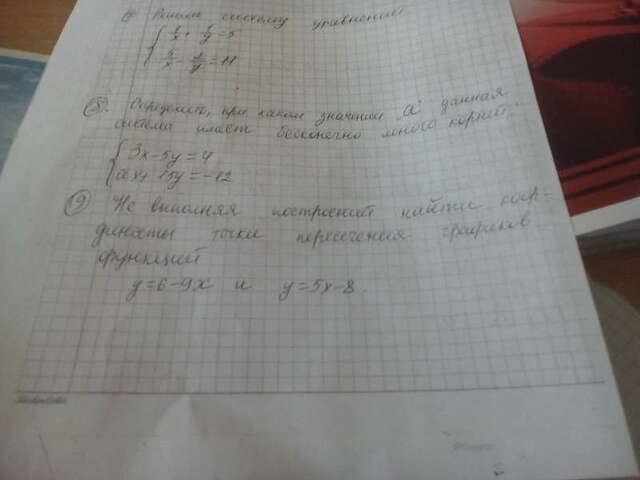 Решите систему уравнений
1/x + 1/y = 5
11
8. Определить, при каком значении а данная
система имеет бесконечно много корней.
3x-5y=4
ax+15y=-12
9 Не выполняя построений найти коор-
динаты точки пересечения графиков
функций
y=6-9x и y=5x-8.